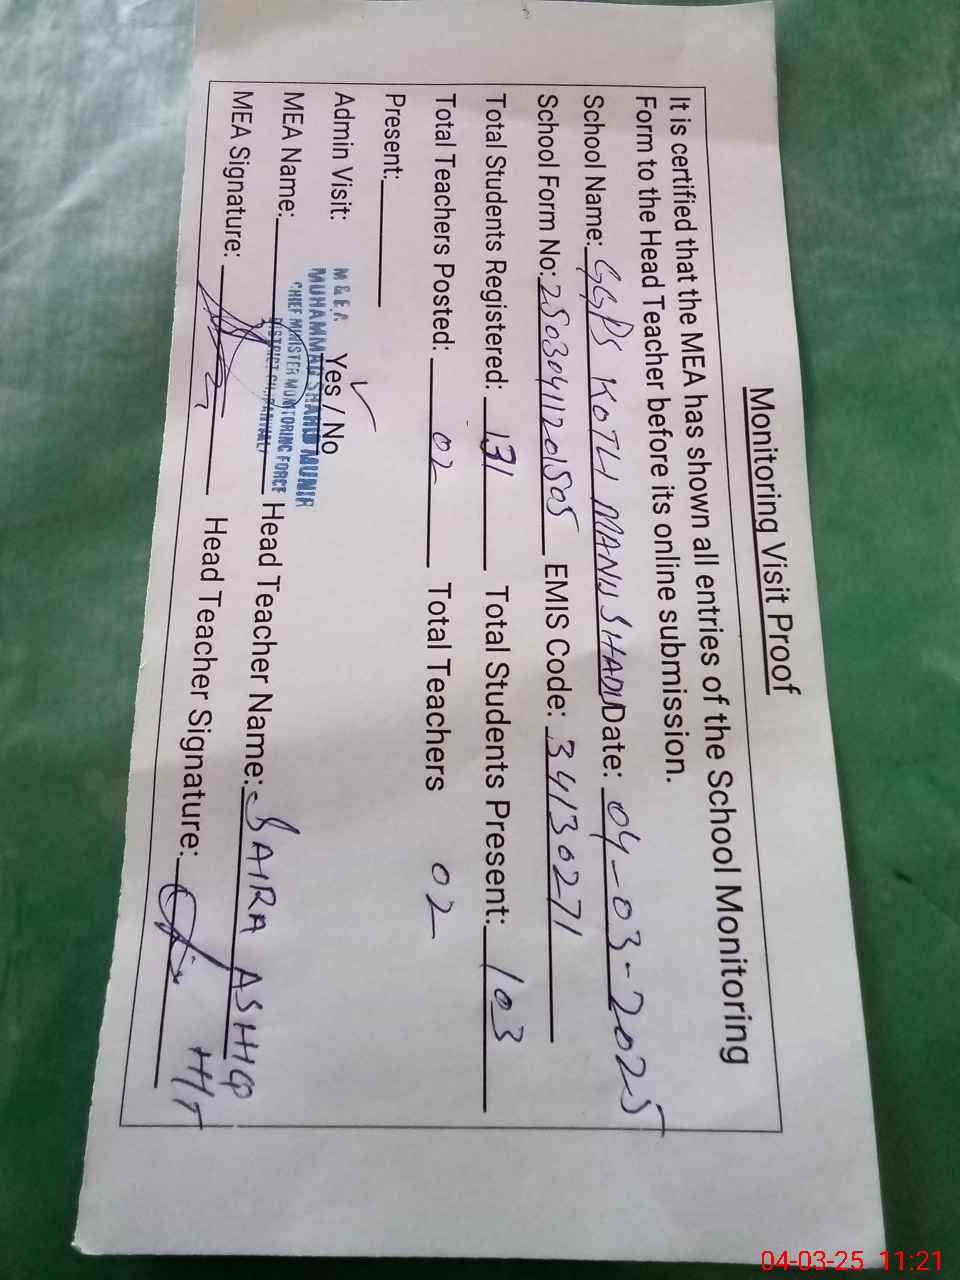 Monitoring Visit Proof
It is certified that the MEA has shown all entries of the School Monitoring
Form to the Head Teacher before its online submission.
School Name: GGPS KOTLI MANU SHADU Date: 04-03-2025
School Form No: 25030411201505 EMIS Code: 34130271
Total Students Registered: 131 Total Students Present: 103
Total Teachers Posted: 02 Total Teachers 02
Present:
Admin Visit: Yes / No
M & E A
MUHAMMAD SHAHID MUNIR
CHIEF MINISTER MONITORING FORCE
DISTRICT
MEA Name: Head Teacher Name: SAIRA ASHIQ
MEA Signature: Head Teacher Signature: H/T
04-03-25 11:21